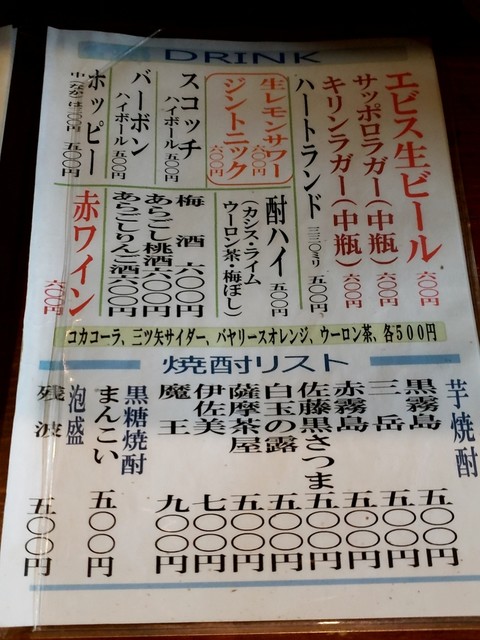 DRINK
エビス生ビール 六〇〇円
サッポロラガー(中瓶) 六〇〇円
キリンラガー(中瓶) 六〇〇円
ハートランド 三三〇ミリ 五〇〇円
生レモンサワー 六〇〇円
ジントニック 六〇〇円
スコッチ
ハイボール 五〇〇円
バーボン
ハイボール 五〇〇円
ホッピー 五〇〇円
中(なか)は二〇〇円
酎ハイ 五〇〇円
(カシス・ライム
ウーロン茶・梅ぼし)
梅酒 六〇〇円
あらごし桃酒 六〇〇円
あらごしりんご酒 六〇〇円
赤ワイン 六〇〇円
コカコーラ、三ツ矢サイダー、バヤリースオレンジ、ウーロン茶、各500円
焼酎リスト
芋焼酎
黒霧島 五〇〇円
三岳 五〇〇円
赤霧島 五〇〇円
佐藤黒さつま 五〇〇円
白玉の露 五〇〇円
薩摩茶屋 五〇〇円
伊佐美 七〇〇円
魔王 九〇〇円
黒糖焼酎
まんこい 五〇〇円
泡盛
残波 五〇〇円